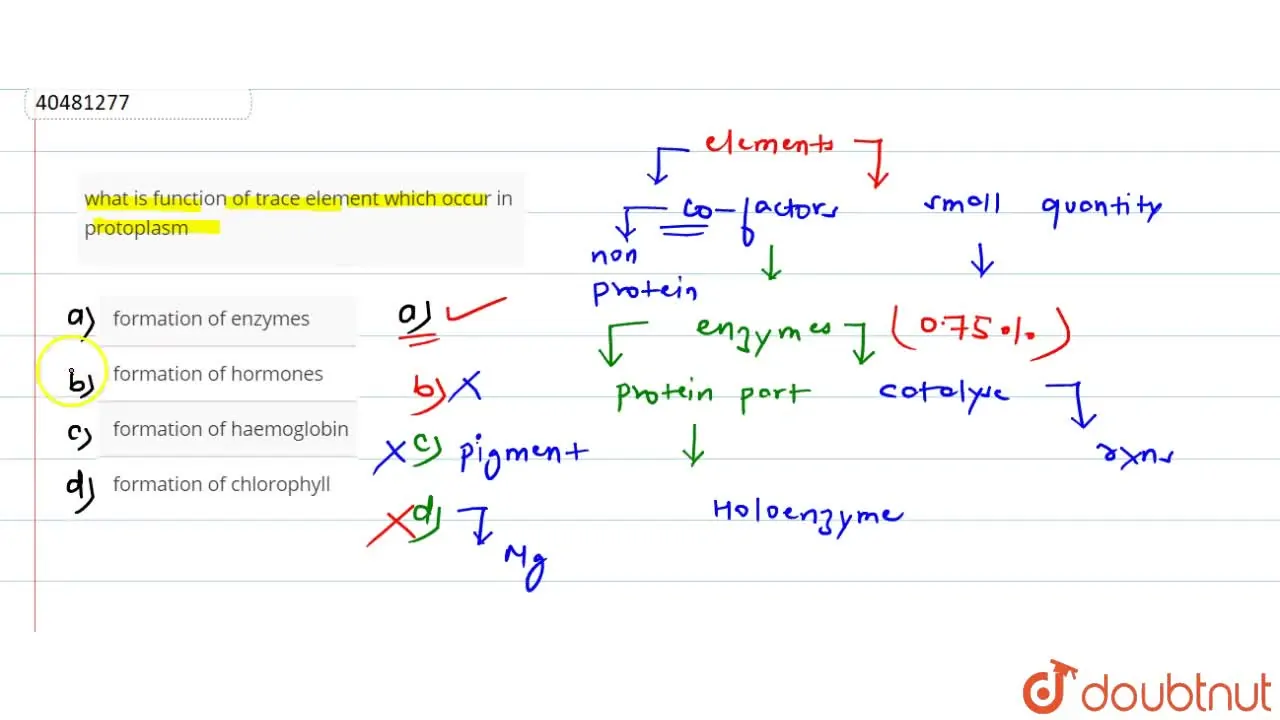 40481277
what is function of trace element which occur in
protoplasm
a) formation of enzymes
b) formation of hormones
c) formation of haemoglobin
d) formation of chlorophyll
a)
b) X
X c) pigment
X d)
Mg
elements
co-factors
small quantity
non
protein
enzymes
(0.75%)
protein part
catalyse
rxns
Holoenzyme
doubtnut